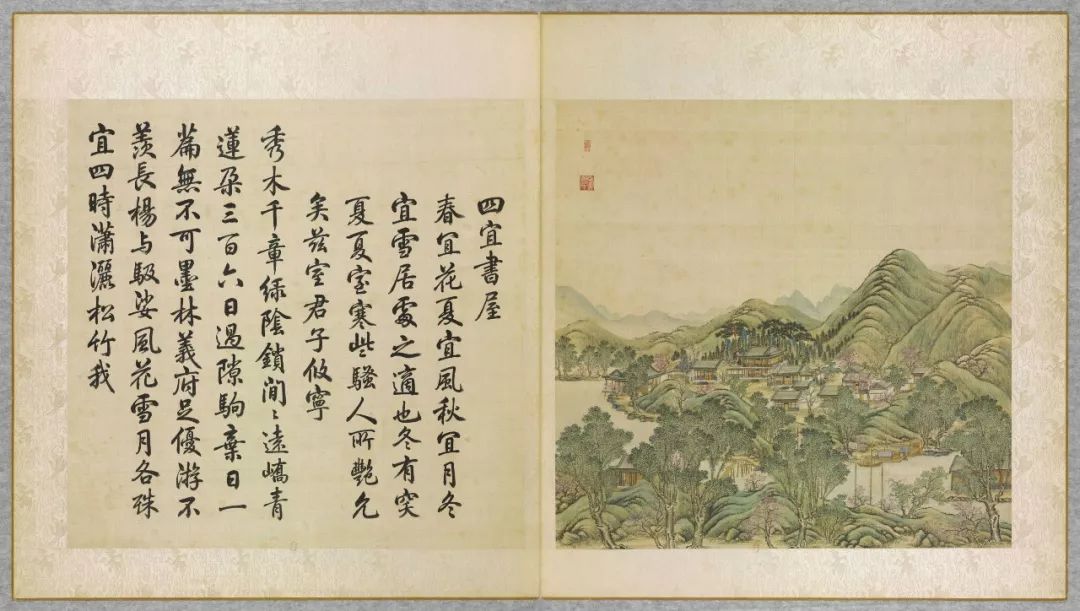 四宜書屋
春宜花夏宜風秋宜月冬
宜雪居處之適也冬有突
夏夏室寒些騷人所艷允
矣茲室君子攸寧
秀木千章綠陰鎖間〻遠嶠青
蓮朵三百六日過隙駒棄日一
篇無不可墨林義府足優游不
羨長楊与馺娑風花雪月各殊
宜四時瀟灑松竹我